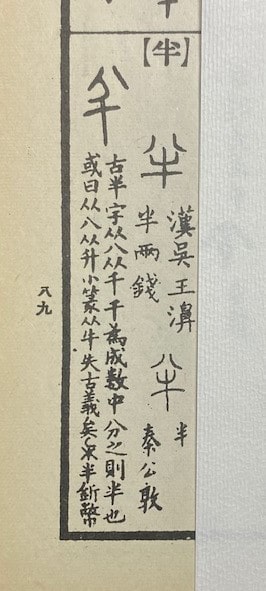 【半】
半
漢吳王濞
半兩錢
半
半
秦公敦
古半字从八从千千為成數中分之則半也
或曰从八从升小篆从牛失古義矣半釿幣
八九